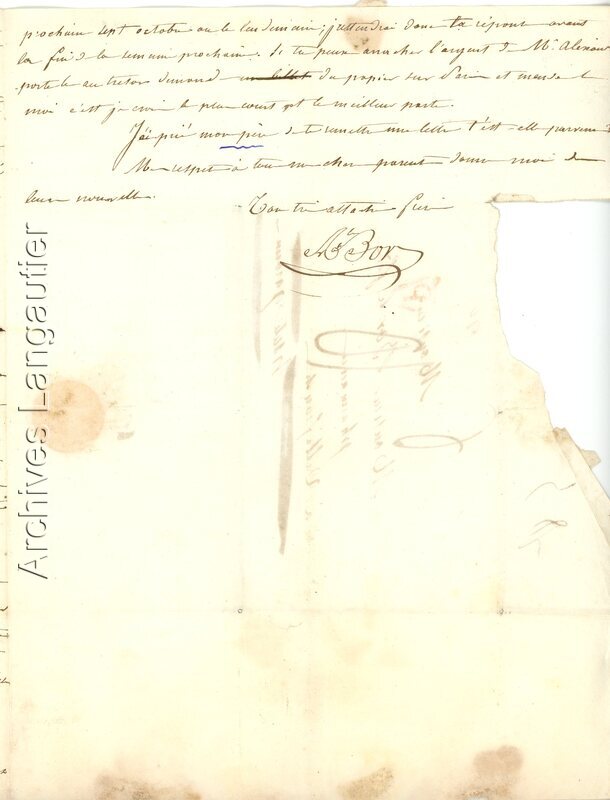 prochain sept octobre ou le lendemain; j'attendrai donc ta réponse avant
la fin de la semaine prochaine. Si tu peux arracher l'argent de Mr.
porte le au trésor demand du papier sur Paris et
moi c'est je crois le plus court et le meilleur parti.
J'ai prié mon père de te remettre une lettre t'est-elle parvenue
Mes respect à tous mes cher parent donne moi de
leurs nouvelle.
Ton très attaché frère
Bor
Archives Langautier